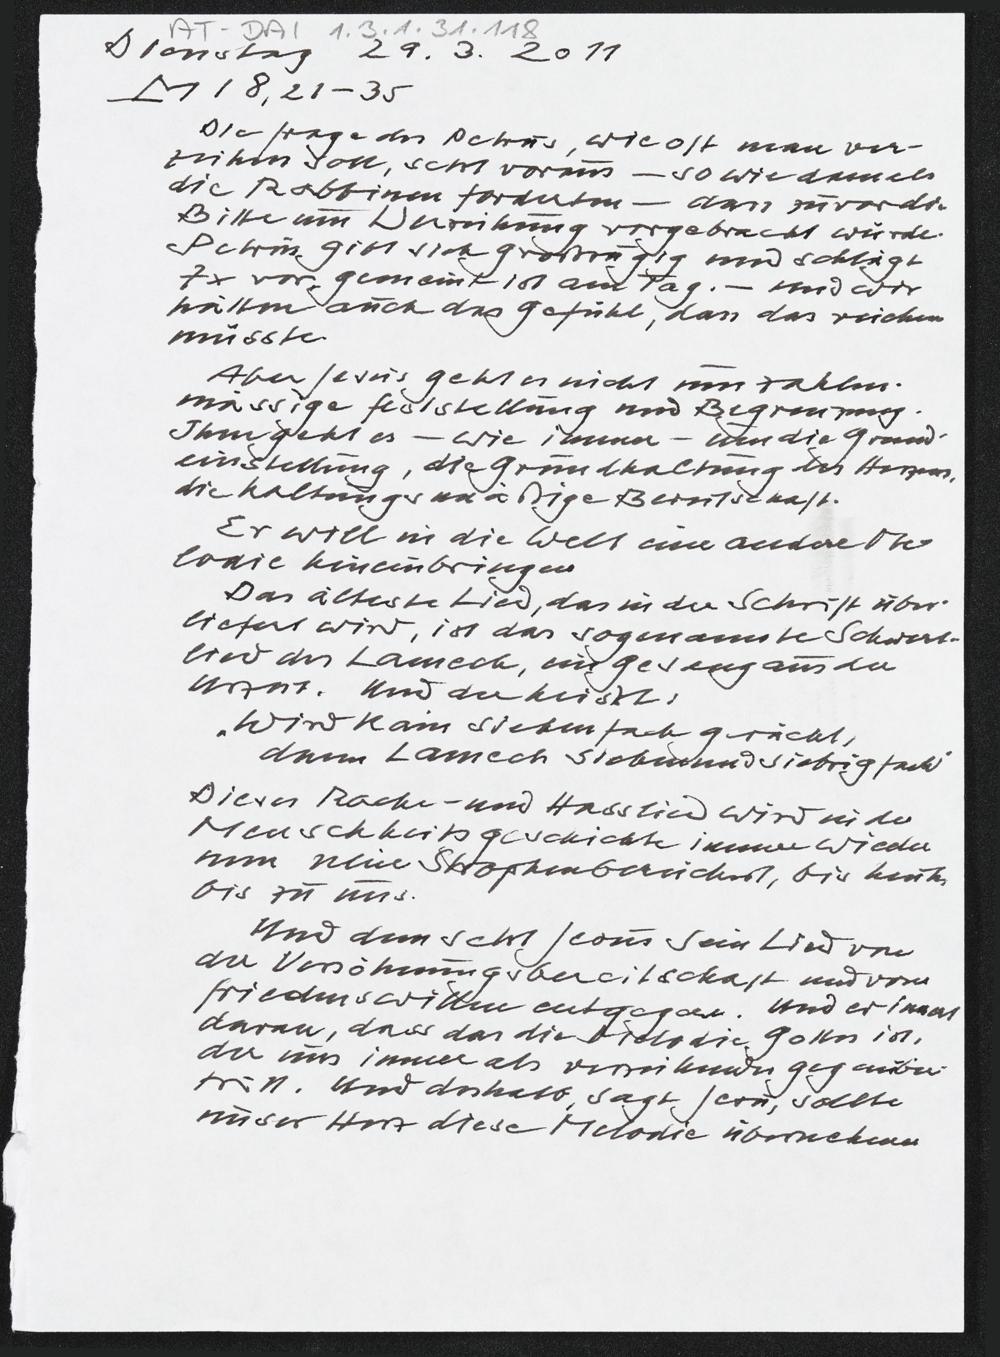 AT-DAI 1.3.1.31.118
Dienstag 29.3.2011
M 18,21-35
Die Frage des Petrus, wie oft man ver-
zeihen soll, setzt voraus – so wie damals
die Rabbinen forderten – dass zuvor die
Bitte um Verzeihung vorgebracht würde.
Petrus gibt sich großzügig und schlägt
7x vor, gemeint ist am Tag. – und wir
hätten auch das Gefühl, dass das reichen
müsste.
Aber Jesus geht es nicht um zahlen-
mässige Feststellung und Begrenzung.
Ihm geht es – wie immer – um die Grund-
einstellung, die Grundhaltung des Herzens,
die haltungsmäßige Bereitschaft.
Er will in die Welt eine andere Me-
lodie hineinbringen
Das älteste Lied, das in der Schrift über-
liefert wird, ist das sogenannte Schwert-
lied des Lamech, ein Gesang aus der
Urzeit. Und der heißt:
„Wird Kain siebenfach gerächt,
dann Lamech siebenundsiebzigfach"
Dieses Rache- und Hasslied wird in der
Menschheitsgeschichte immer wieder
um neue Strophen bereichert, bis heute,
bis zu uns.
Und dem setzt Jesus sein Lied von
der Versöhnungsbereitschaft und vom
Friedenswillen entgegen. Und er innert
daran, dass das die Melodie Gottes ist,
der uns immer als verzeihender gegenüber
tritt. Und deshalb, sagt Jesus, sollte
unser Herz diese Melodie übernehmen